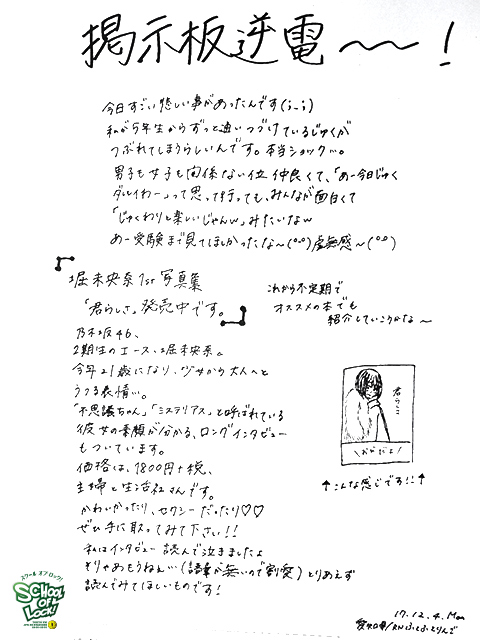 掲示板逆電〜〜!
今日すごい悲しい事があったんです(;_;)
私が5年生からずっと通いつづけているじゅくが
つぶれてしまうらしいんです。本当ショック…。
男子も女子も関係ない位仲良くて、「あー今日じゅく
ダルイわー」って思って行っても、みんなが面白くて
「じゅくわりと楽しいじゃんw」みたいなw
あー受験まで見てほしかったな〜(°°)虚無感〜(°°)
堀未央奈1st写真集
「君らしさ」発売中です。
これから不定期で
オススメの本でも
紹介していこうかな〜
乃木坂46、
2期生のエース、堀未央奈。
今年21歳になり、少女から大人へと
うつる表情…。
「不思議ちゃん」「ミステリアス」と呼ばれている
彼女の素顔が分かる、ロングインタビュー
もついています。
価格は、1800円+税、
主婦と生活社さんです。
かわいかったり、セクシーだったり♡♡
ぜひ手に取ってみて下さい!!
私はインタビュー読んで泣きましたよ
そりゃあもうねぇ…(語彙が無いので割愛)とりあえず
読んでみてほしいものです!
君らしさ
↑こんな感じです!!↑
17.12.4.Mon
愛知県/RNふとふとりんご
スクール オブ ロック!
SCHOOL OF LOCK!